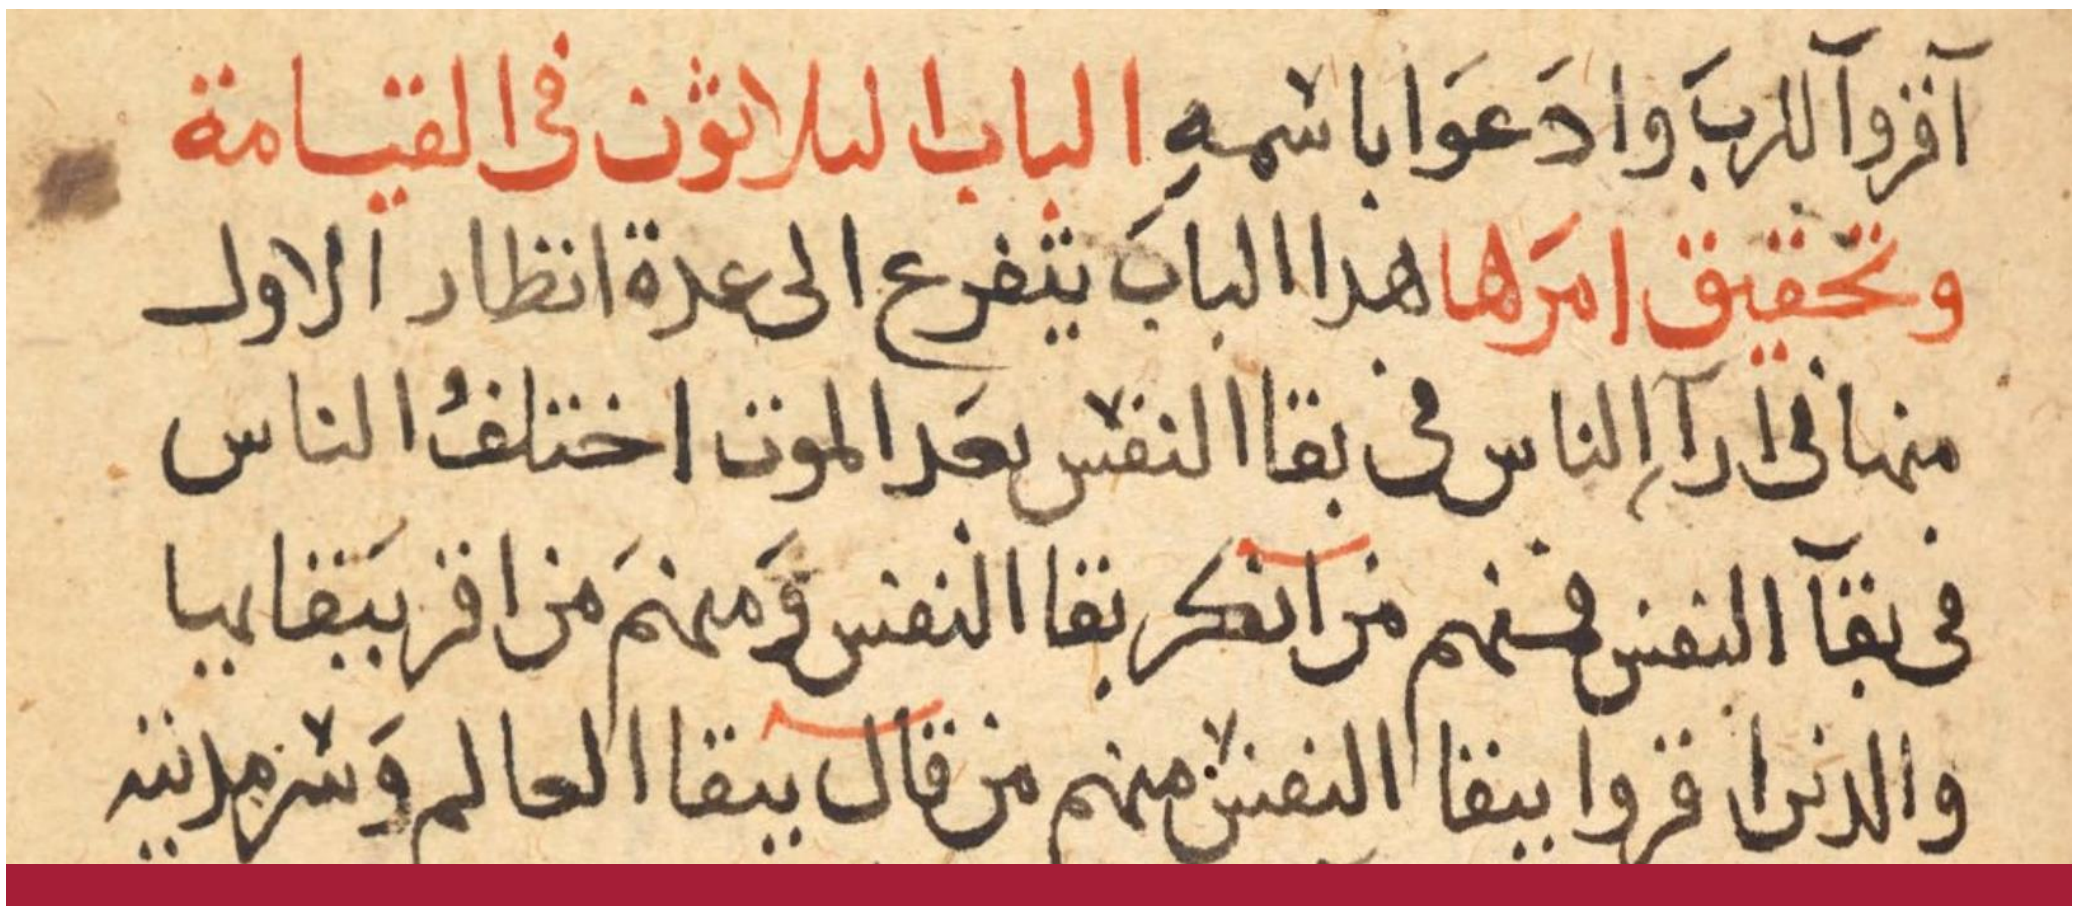 آقروا للرب وادعوا باسمه الباب الثلاثون في القيامة
وتحقيق امرها هدا الباب يتفرع الى عدة انظار الاول
منها في ارآ الناس في بقا النفس بعد الموت اختلف الناس
في بقآ النفس فمنهم من انكر بقا النفس ومنهم من اقر ببقايها
والدين اقروا ببقا النفس منهم من قال ببقا العالم وسرمديته